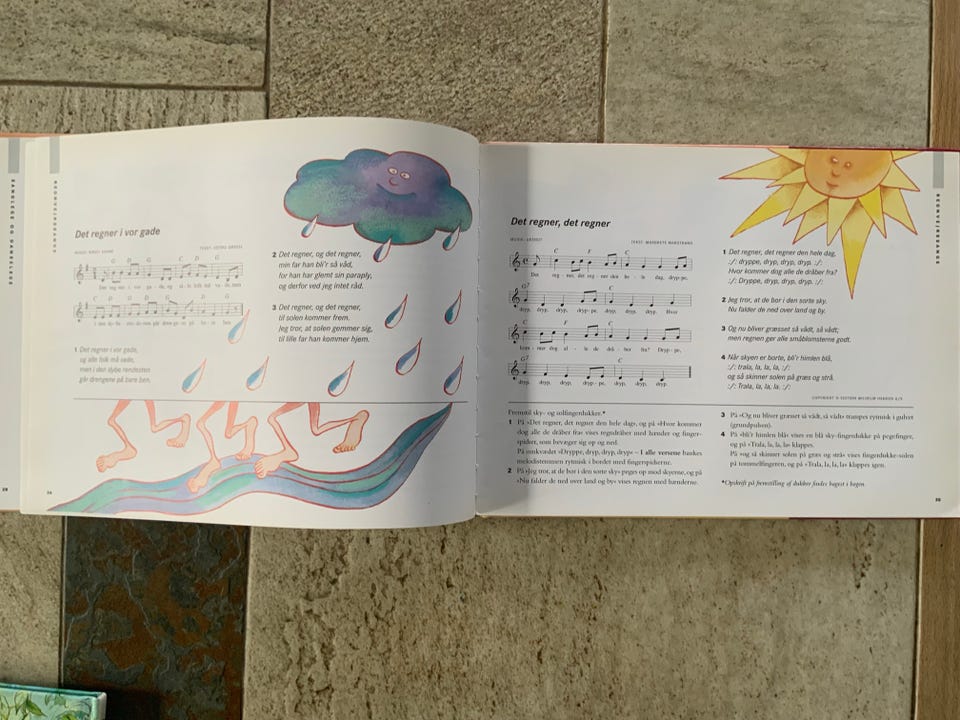 SANGLEGE OG DANSELEGE
Det regner i vor gade
Det reg-ner i vor ga-de, og al-le folk må va-de, men
1 Det regner i vor gade,
og alle folk må vade,
men i den dybe rendesten
går drengene på bare ben.
2 Det regner, og det regner,
min far han bli'r så våd,
for han har glemt sin paraply,
og derfor ved jeg intet råd.
3 Det regner, og det regner,
til solen kommer frem.
Jeg tror, at solen gemmer sig,
til lille far han kommer hjem.
REGNVEJRSSANGE
Det regner, det regner
1 Det regner, det regner den hele dag,
:/: dryppe, dryp, dryp, dryp. :/:
Hvor kommer dog alle de dråber fra?
:/: Dryppe, dryp, dryp, dryp. :/:
2 Jeg tror, at de bor i den sorte sky.
Nu falder de ned over land og by.
3 Og nu bliver græsset så vådt, så vådt;
men regnen gør alle småblomsterne godt.
4 Når skyen er borte, bli'r himlen blå,
:/: trala, la, la, la, :/:
og så skinner solen på græs og strå.
:/: Trala, la, la, la. :/:
COPYRIGHT © EDITION WILHELM HANSEN A/S
Det reg - ner, det reg - ner den he - le dag, dryp-pe,
dryp, dryp, dryp, dryp-pe, dryp, dryp, dryp. Hvor
kom - mer dog al - le de drå - ber fra? Dryp-pe,
dryp, dryp, dryp, dryp-pe, dryp, dryp, dryp.
Fremstil sky- og solfingerdukker.*
1 På »Det regner, det regner den hele dag«, og på »Hvor kommer
dog alle de dråber fra« vises regndråber med hænder og finger-
spidser, som bevæger sig op og ned.
På omkvædet »Dryppe, dryp, dryp, dryp« – i alle versene bankes
melodistemmen rytmisk i bordet med fingerspidserne.
2 På »Jeg tror, at de bor i den sorte sky« peges op mod skyerne, og på
»Nu falder de ned over land og by« vises regnen med hænderne.
3 På »Og nu bliver græsset så vådt, så vådt« trampes rytmisk i gulvet
(grundpulsen).
4 På »bli'r himlen blå« vises en blå sky-fingerdukke på pegefinger,
og på »Trala, la, la, la« klappes.
På »og så skinner solen på græs og strå« vises fingerdukke-solen
på tommelfingeren, og på »Trala, la, la, la« klappes igen.
*Opskrift på fremstilling af dukker findes bagest i bogen.